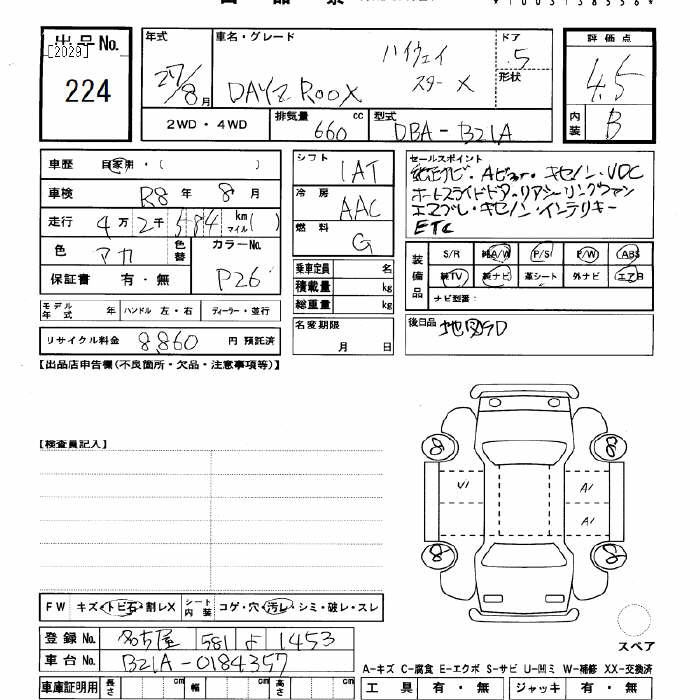 出品No. [2029] 224
年式 27/8月
車名・グレード DAYZ ROOX ハイウェイ スター X
ドア 5 形状
評価点 4.5
内装 B
2WD・4WD 排気量 660 cc 型式 DBA-B21A
車歴 自家用・( )
車検 R8年 8月
走行 4万2千584 km マイル( )
色 アカ 色替 カラーNo. P26
保証書 有・無
モデル年式 年 ハンドル 左・右 ディーラー・並行
リサイクル料金 8,860 円 預託済
シフト IAT
冷房 AAC
燃料 G
乗車定員 名
積載量 kg
総重量 kg
名変期限 月 日
セールスポイント
純正ナビ・Aビュー・キセノン・VDC
オートスライドドア・リアシーリングファン
エマブレ・キセノン・インテリキー
ETC
装備品 S/R 純A/W P/S P/W ABS
純TV 純ナビ 革シート 外ナビ エアB
ナビ型番:
後日品 地図SD
【出品店申告欄(不良箇所・欠品・注意事項等)】
【検査員記入】
8 8
U1 A1
A1
8 8
スペア
FW キズ・トビ石・割レX シート内装 コゲ・穴・汚レ・シミ・破レ・スレ
登録No. 名古屋 581 よ 1453
車台No. B21A-0184357
A-キズ C-腐食 E-エクボ S-サビ U-凹ミ W-補修 XX-交換済
車庫証明用 長さ cm 幅 cm 高さ cm
工具 有・無 ジャッキ 有・無